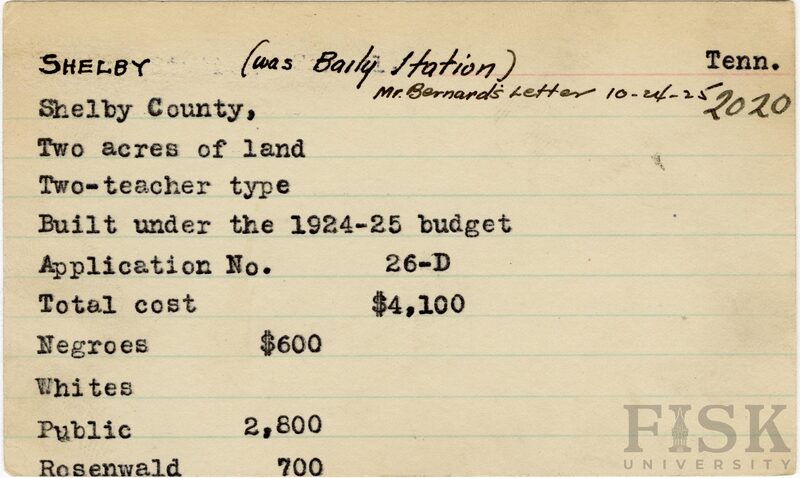 SHELBY (was Baily Station) Tenn.
Mr. Bernard's Letter 10-24-25
2020
Shelby County,
Two acres of land
Two-teacher type
Built under the 1924-25 budget
Application No. 26-D
Total cost $4,100
Negroes $600
Whites
Public 2,800
Rosenwald 700
FISK
UNIVERSITY